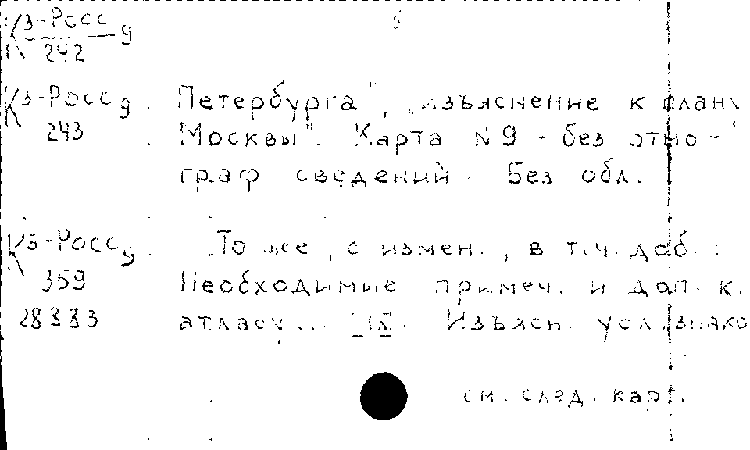 К3-Росс 9
242
К3-Росс 9 Петербурга", "изъяснение к плану
243 Москвы". Карта №9 - без этно-
граф сведений. Без обл.
К3-Росс 9 То же, с измен., в т.ч. доб.:
359 Необходимие примеч. и доп. к
28883 атласу... Изъясн. усл. знако
см. след. карт.